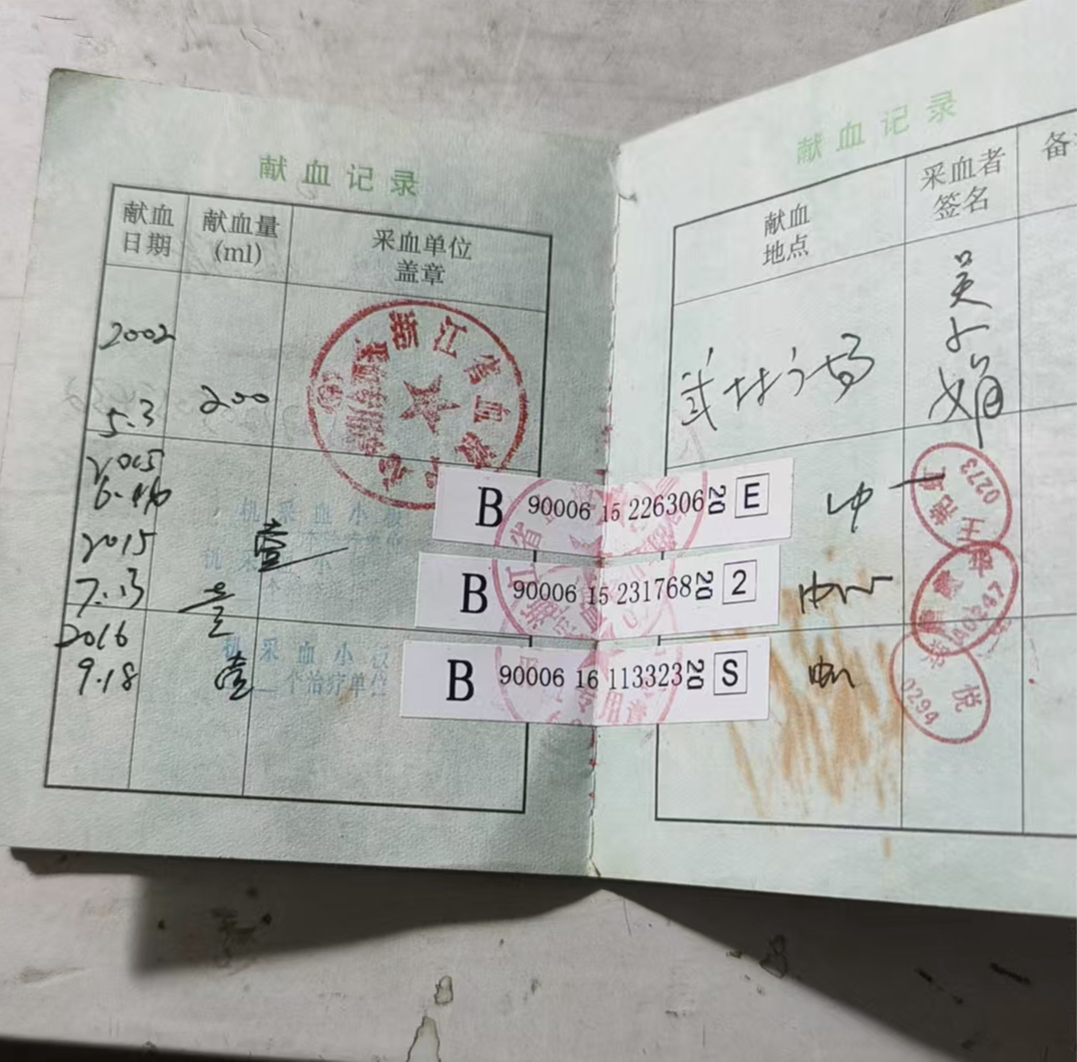 献血记录
献血日期
献血量(ml)
采血单位盖章
2002
5.3
200
浙江省血液中心
2015
2015
7.13
壹
机采血小板
壹
2016
9.18
壹
机采血小板
个治疗单位
B 90006 15 226306 20 E
B 90006 15 231768 20 2
B 90006 16 113323 20 S
献血记录
献血地点
采血者签名
备
武林广场
吴小娟
中
0273
中心
A0247
中心
悦
0294